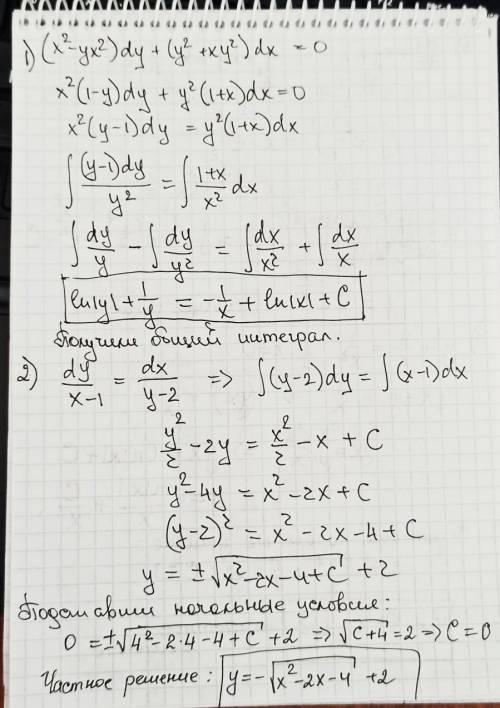 1) (x²-yx²)dy + (y²+xy²)dx = 0
x²(1-y)dy + y²(1+x)dx = 0
x²(y-1)dy = y²(1+x)dx
∫ (y-1)dy / y² = ∫ (1+x)/x² dx
∫ dy/y - ∫ dy/y² = ∫ dx/x² + ∫ dx/x
ln|y| + 1/y = -1/x + ln|x| + C
Получили общий интеграл.
2) dy/(x-1) = dx/(y-2) => ∫(y-2)dy = ∫(x-1)dx
y²/2 - 2y = x²/2 - x + C
y²-4y = x²-2x+C
(y-2)² = x²-2x-4+C
y = ±√(x²-2x-4+C) + 2
Подставим начальные условия:
0 = ±√(4²-2·4-4+C) + 2 => √(C+4) = 2 => C=0
Частное решение: y = -√(x²-2x-4) + 2